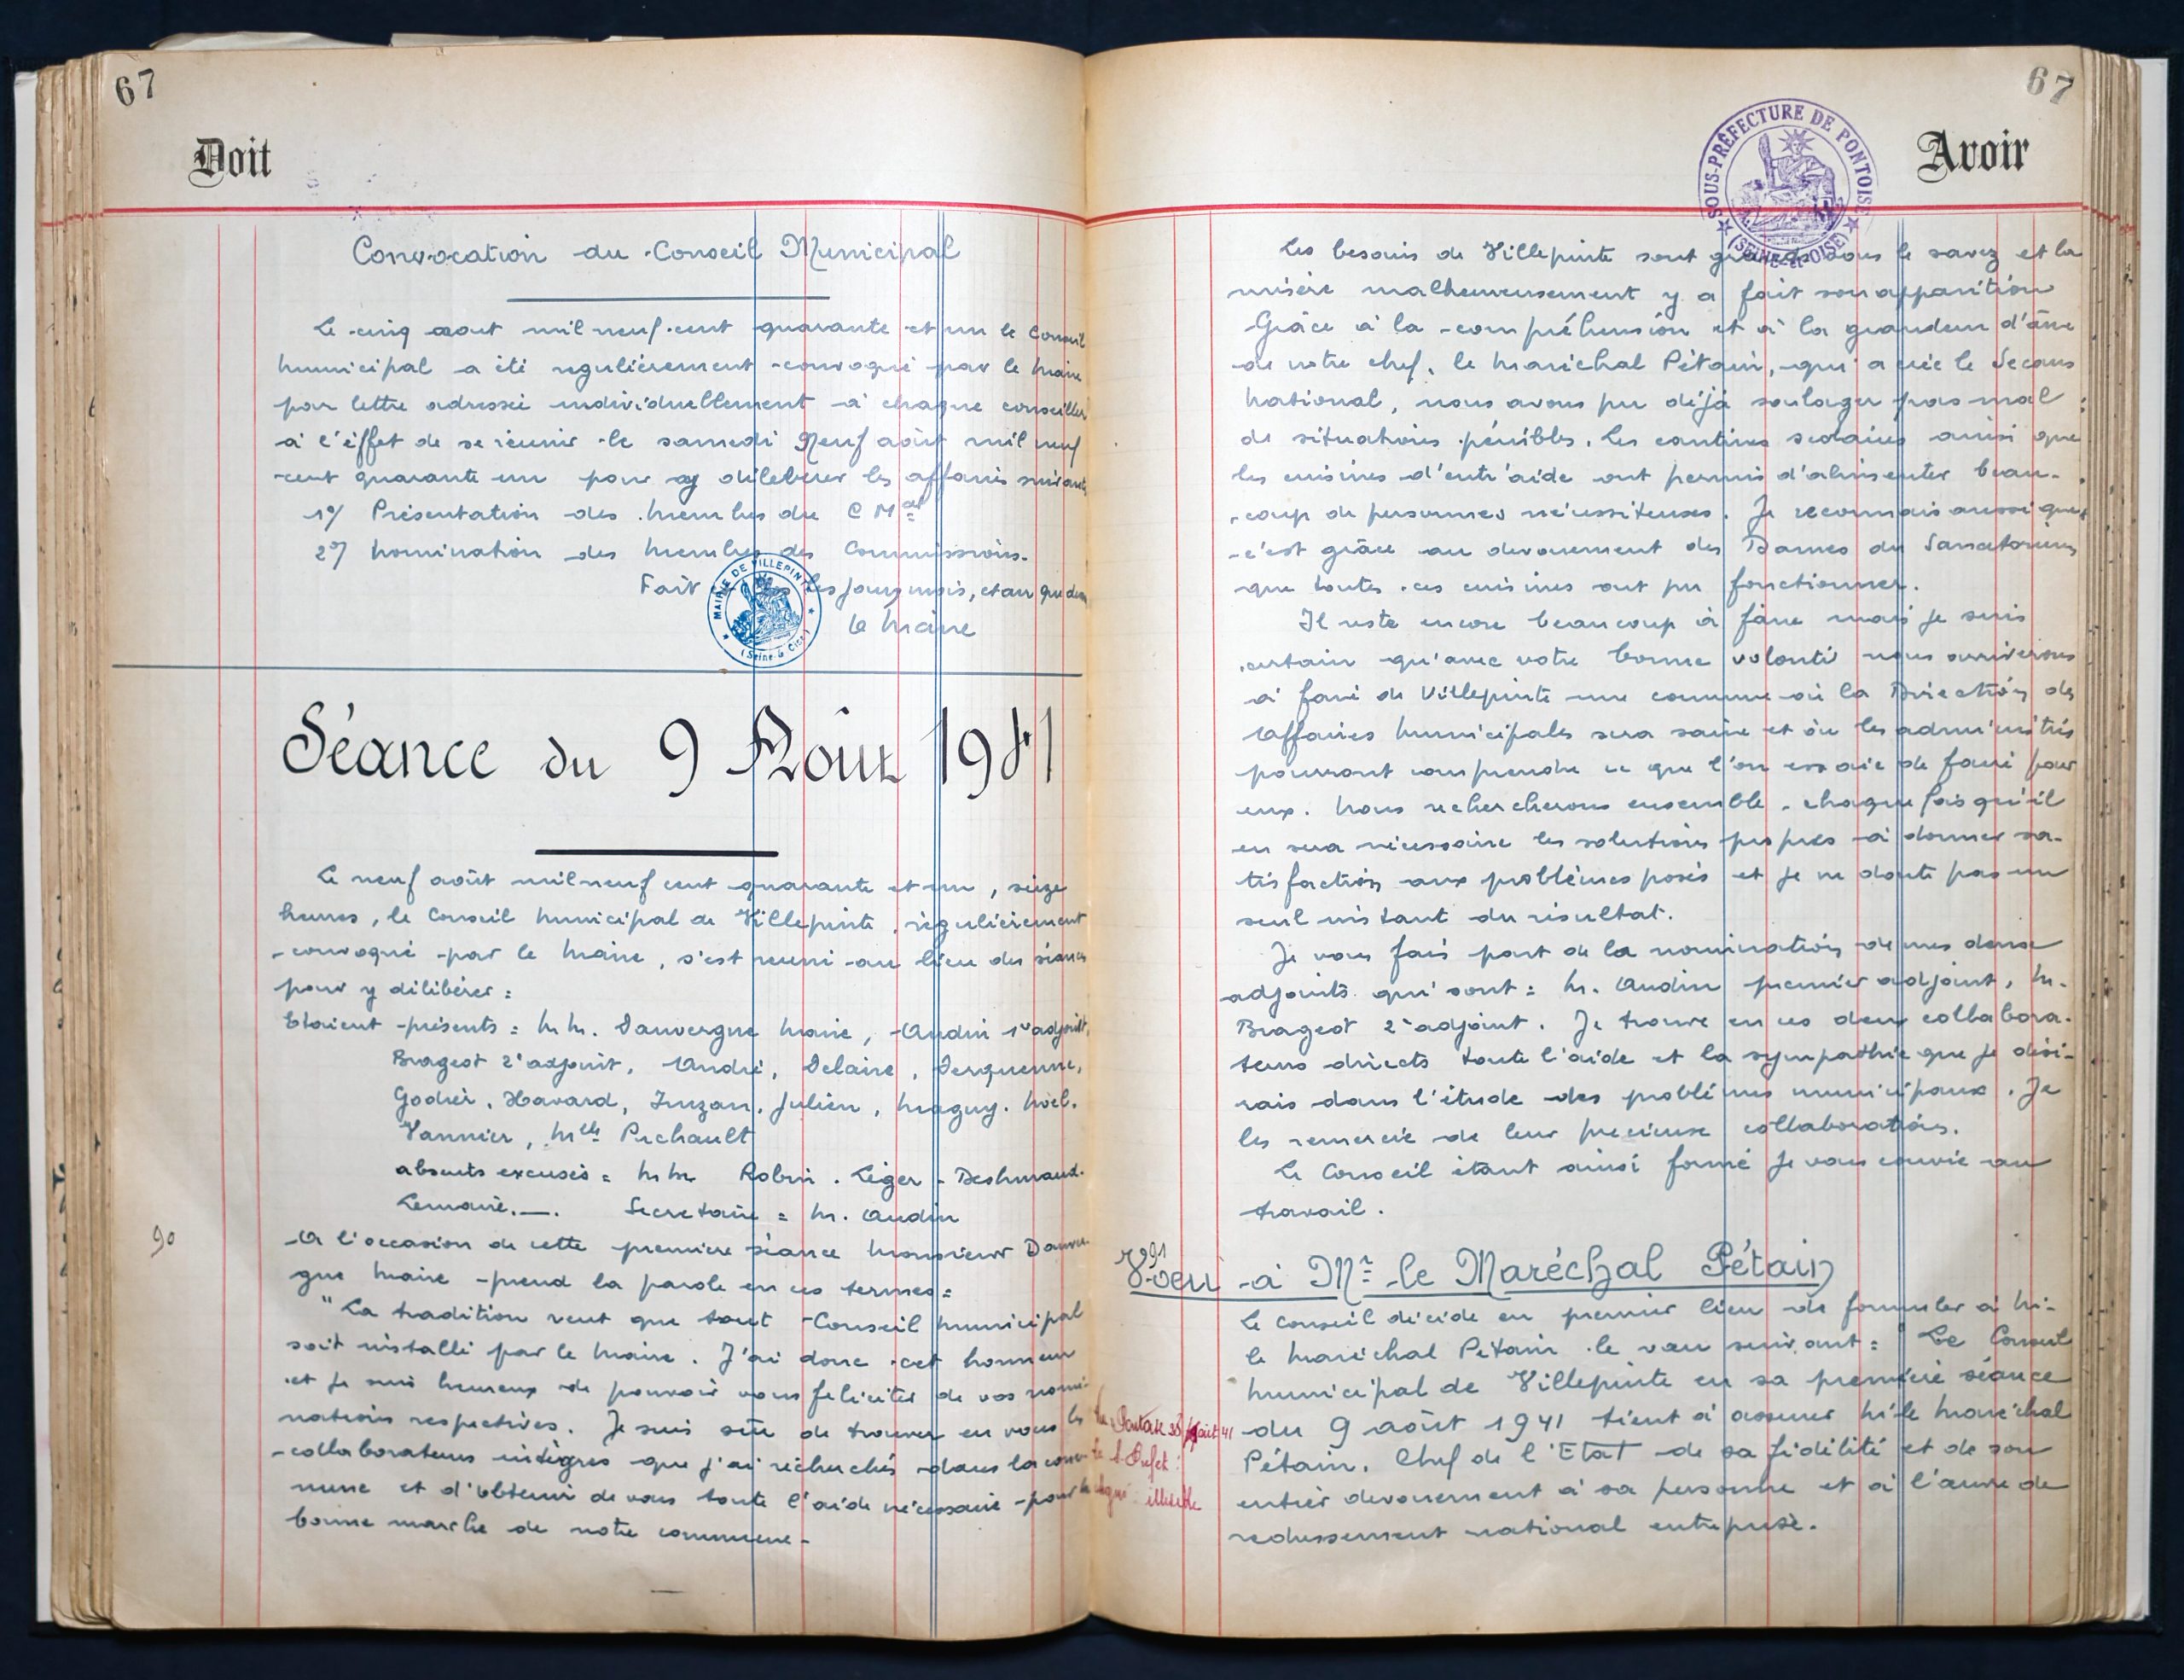 67
Doit
Convocation du Conseil Municipal
Le cinq aout mil neuf cent quarante et un le Conseil
Municipal a été regulièrement convoqué par le Maire
par lettre adressée individuellement à chaque conseiller
à l'éffet de se réunir le samedi Neuf août mil neuf
cent quarante un pour y déleberer les affaires suivantes
1º/ Présentation des Membres du C Mal
2º/ Nomination des Membres des Commissions.
Fait les jour, mois, et an que dessus
MAIRIE DE VILLEPINTE
(Seine & Oise)
le Maire
Séance du 9 Août 1941
Le neuf août mil neuf cent quarante et un, seize
heures, le Conseil Municipal de Villepinte, régulièrement
convoqué par le Maire, s'est reuni au lieu des séances
pour y délibérer :
Etaient présents : M.M. Dauvergne Maire, Audin 1er adjoint,
Brageot 2e adjoint, André, Delaire, Derquenne,
Godier, Havard, Juzan, Julien, Maguy, Noël,
Vannier, Mlle Pechault
absents excusés : M.M. Robin - Léger - Deshmaud -
Lemaire. —. Secretaire : M. Audin
90
A l'occasion de cette première séance Monsieur Dauver-
gne Maire prend la parole en ces termes :
"La tradition veut que tout Conseil Municipal
soit installé par le Maire. J'ai donc cet honneur
et je suis heureux de pouvoir vous feliciter de vos nomi-
nations respectives. Je suis sûr de trouver en vous les
collaborateurs intègres que j'ai recherchés dans la com-
mune et d'obtenir de vous toute l'aide nécessaire pour la
bonne marche de notre commune.
67
Avoir
SOUS-PRÉFECTURE DE PONTOISE
(SEINE-et-OISE)
Les besoins de Villepinte sont grands vous le savez et la
misère malheureusement y a fait son apparition
Grâce à la compréhension et à la grandeur d'âme
de notre chef, le Maréchal Pétain, qui a créé le Secours
National, nous avons pu déjà soulager pas mal
de situations pénibles. Les cantines scolaires ainsi que
les cuisines d'entr'aide ont permis d'alimenter beau-
coup de personnes nécessiteuses. Je reconnais aussi que
c'est grâce au devouement des Dames du Sanatorium
que toutes ces cuisines ont pu fonctionner.
Il reste encore beaucoup à faire mais je suis
certain qu'avec votre bonne volonté nous arriverons
à faire de Villepinte une commune où la Direction des
Affaires Municipales sera saine et où les administrés
pourront comprendre ce que l'on essaie de faire pour
eux. Nous rechercherons ensemble, chaque fois qu'il
en sera nécessaire les solutions propres à donner sa-
tisfaction aux problèmes posés et je ne doute pas un
seul instant du résultat.
Je vous fais part de la nomination de mes deux
adjoints qui sont : M. Audin premier adjoint, M.
Brageot 2e adjoint. Je trouve en ces deux collabora-
teurs directs toute l'aide et la sympathie que je dési-
rais dans l'étude des problèmes municipaux. Je
les remercie de leur precieuse collaboration.
Le Conseil étant ainsi formé je vous convie au
travail.
91
Voeu à Mr le Maréchal Pétain
Le conseil décide en premier lieu de formuler à Mr
le Maréchal Pétain le vœu suivant : "Le Conseil
Municipal de Villepinte en sa première séance
du 9 août 1941 tient à assurer Mr le Maréchal
Pétain, Chef de l'Etat de sa fidélité et de son
entier devouement à sa personne et à l'œuvre de
redressement national entreprise.
août 41
Préfet :
illisible